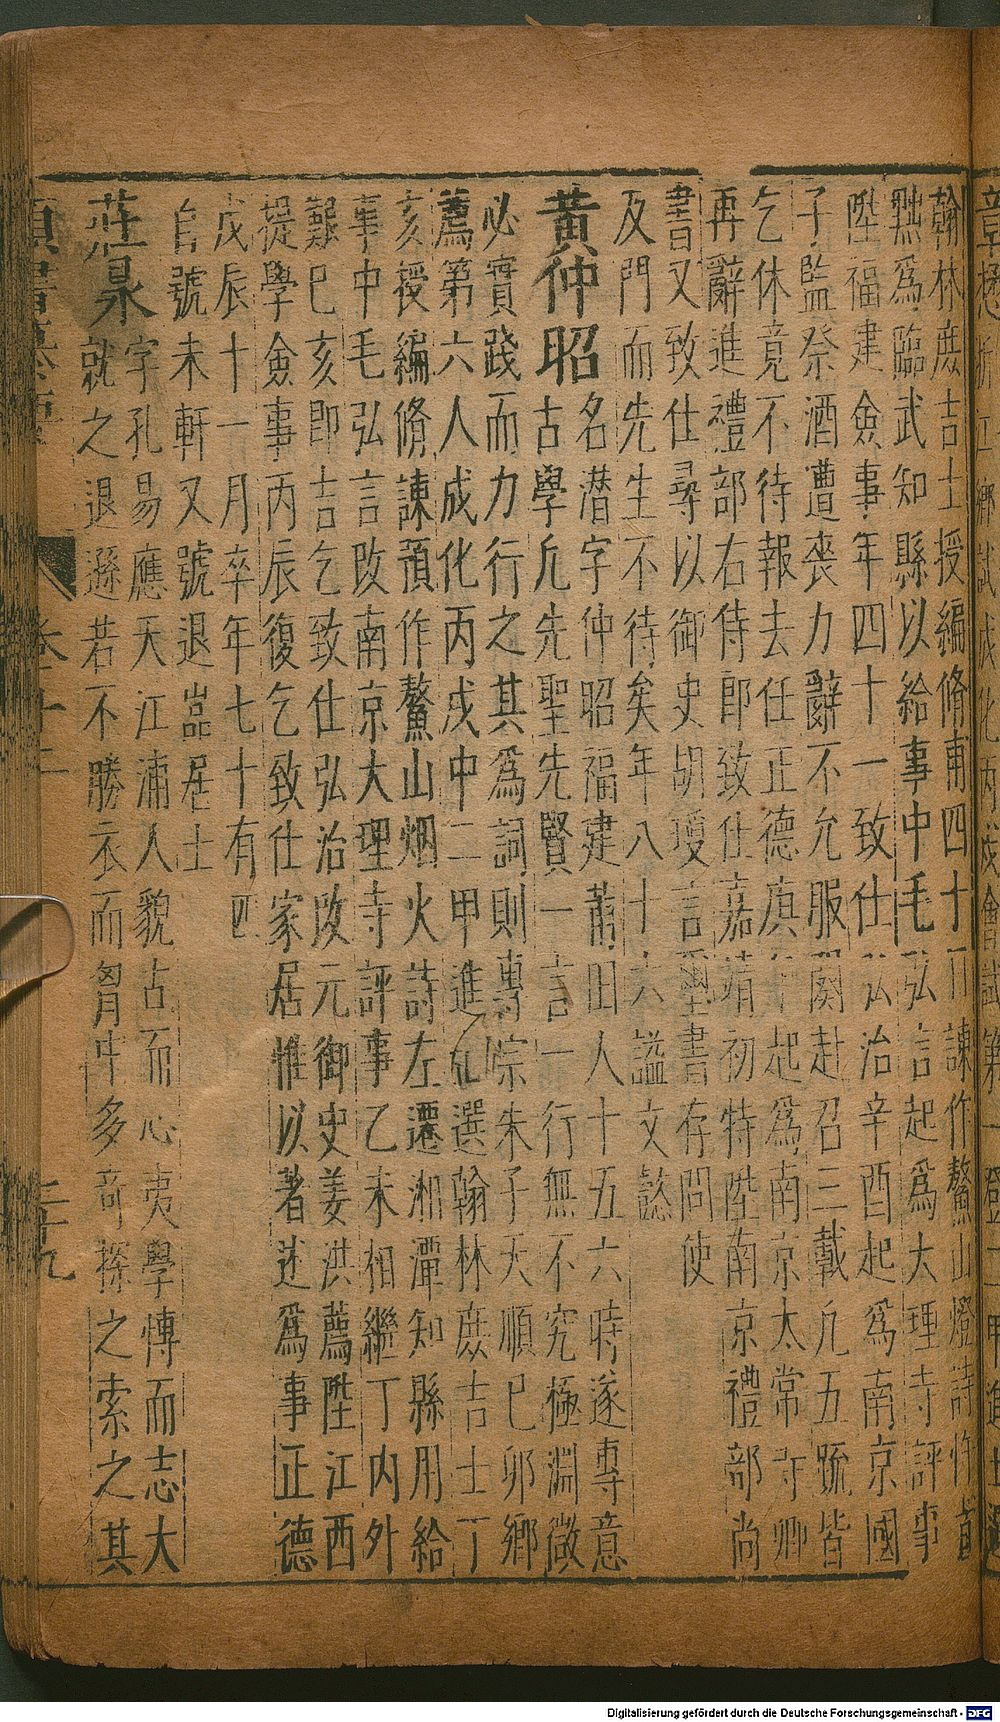 章懋浙江鄉試成化丙戌會試第一登二甲進士選
翰林庶吉士授編脩甫四十日諫作鰲山燈詩忤旨
黜爲臨武知縣以給事中毛弘言起爲大理寺評事
陞福建僉事年四十一致仕弘治辛酉起爲南京國
子監祭酒遭喪力辭不允服闋赴召三載凢五䟽皆
乞休竟不待報去任正德庚午起爲南京太常寺卿
再辭進禮部右侍郎致仕嘉靖初特陞南京禮部尚
書又致仕尋以御史胡瓊言璽書存問使
及門而先生不待矣年八十六謚文懿
黃仲昭名潛字仲昭福建莆田人十五六時遂專意
古學凢先聖先賢一言一行無不究極淵微
必實踐而力行之其爲詞則專宗朱子天順己卯鄉
薦第六人成化丙戌中二甲進士選翰林庶吉士丁
亥授編脩諫預作鰲山烟火詩左遷湘潭知縣用給
事中毛弘言改南京大理寺評事乙未相繼丁內外
艱巳亥即吉乞致仕弘治改元御史姜洪薦陞江西
提學僉事丙辰復乞致仕家居惟以著述爲事正德
戊辰十一月卒年七十有四
自號未軒又號退嵓居士
莊㫤字孔易應天江浦人貌古而心夷學博而志大
就之退遜若不勝衣而胷中多竒探之索之其
卷十二
二十九
Digitalisierung gefördert durch die Deutsche Forschungsgemeinschaft - DFG